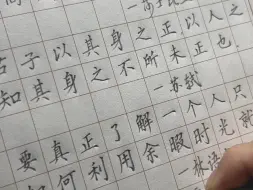 君子以其身之正以人之
知其身之不所未正也.
一苏轼
要真正了解一个人只
如何利用余暇时光就
一林语